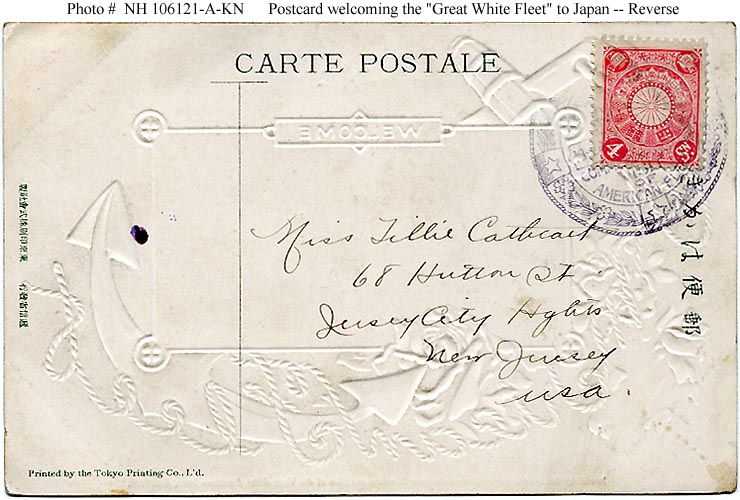 Photo # NH 106121-A-KN Postcard welcoming the "Great White Fleet" to Japan -- Reverse
CARTE POSTALE
WELCOME
4
COMM
OF
AMERICAN FL
郵便はかき
Miss Tillie Cathcart
68 Hutton St.
Jersey City Hghts
New Jersey
USA.
東京印刷株式會社製
逓信省發行
Printed by the Tokyo Printing Co., L'd.